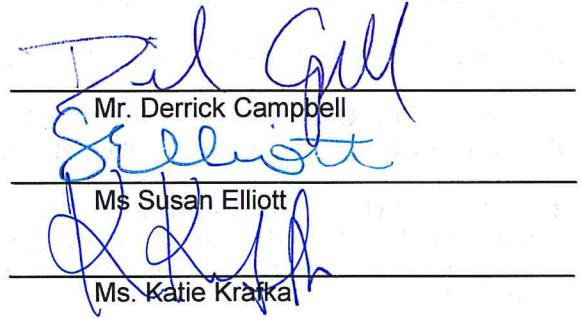 Mr. Derrick Campbell
SElliott
Ms Susan Elliott
Ms. Katie Krafka